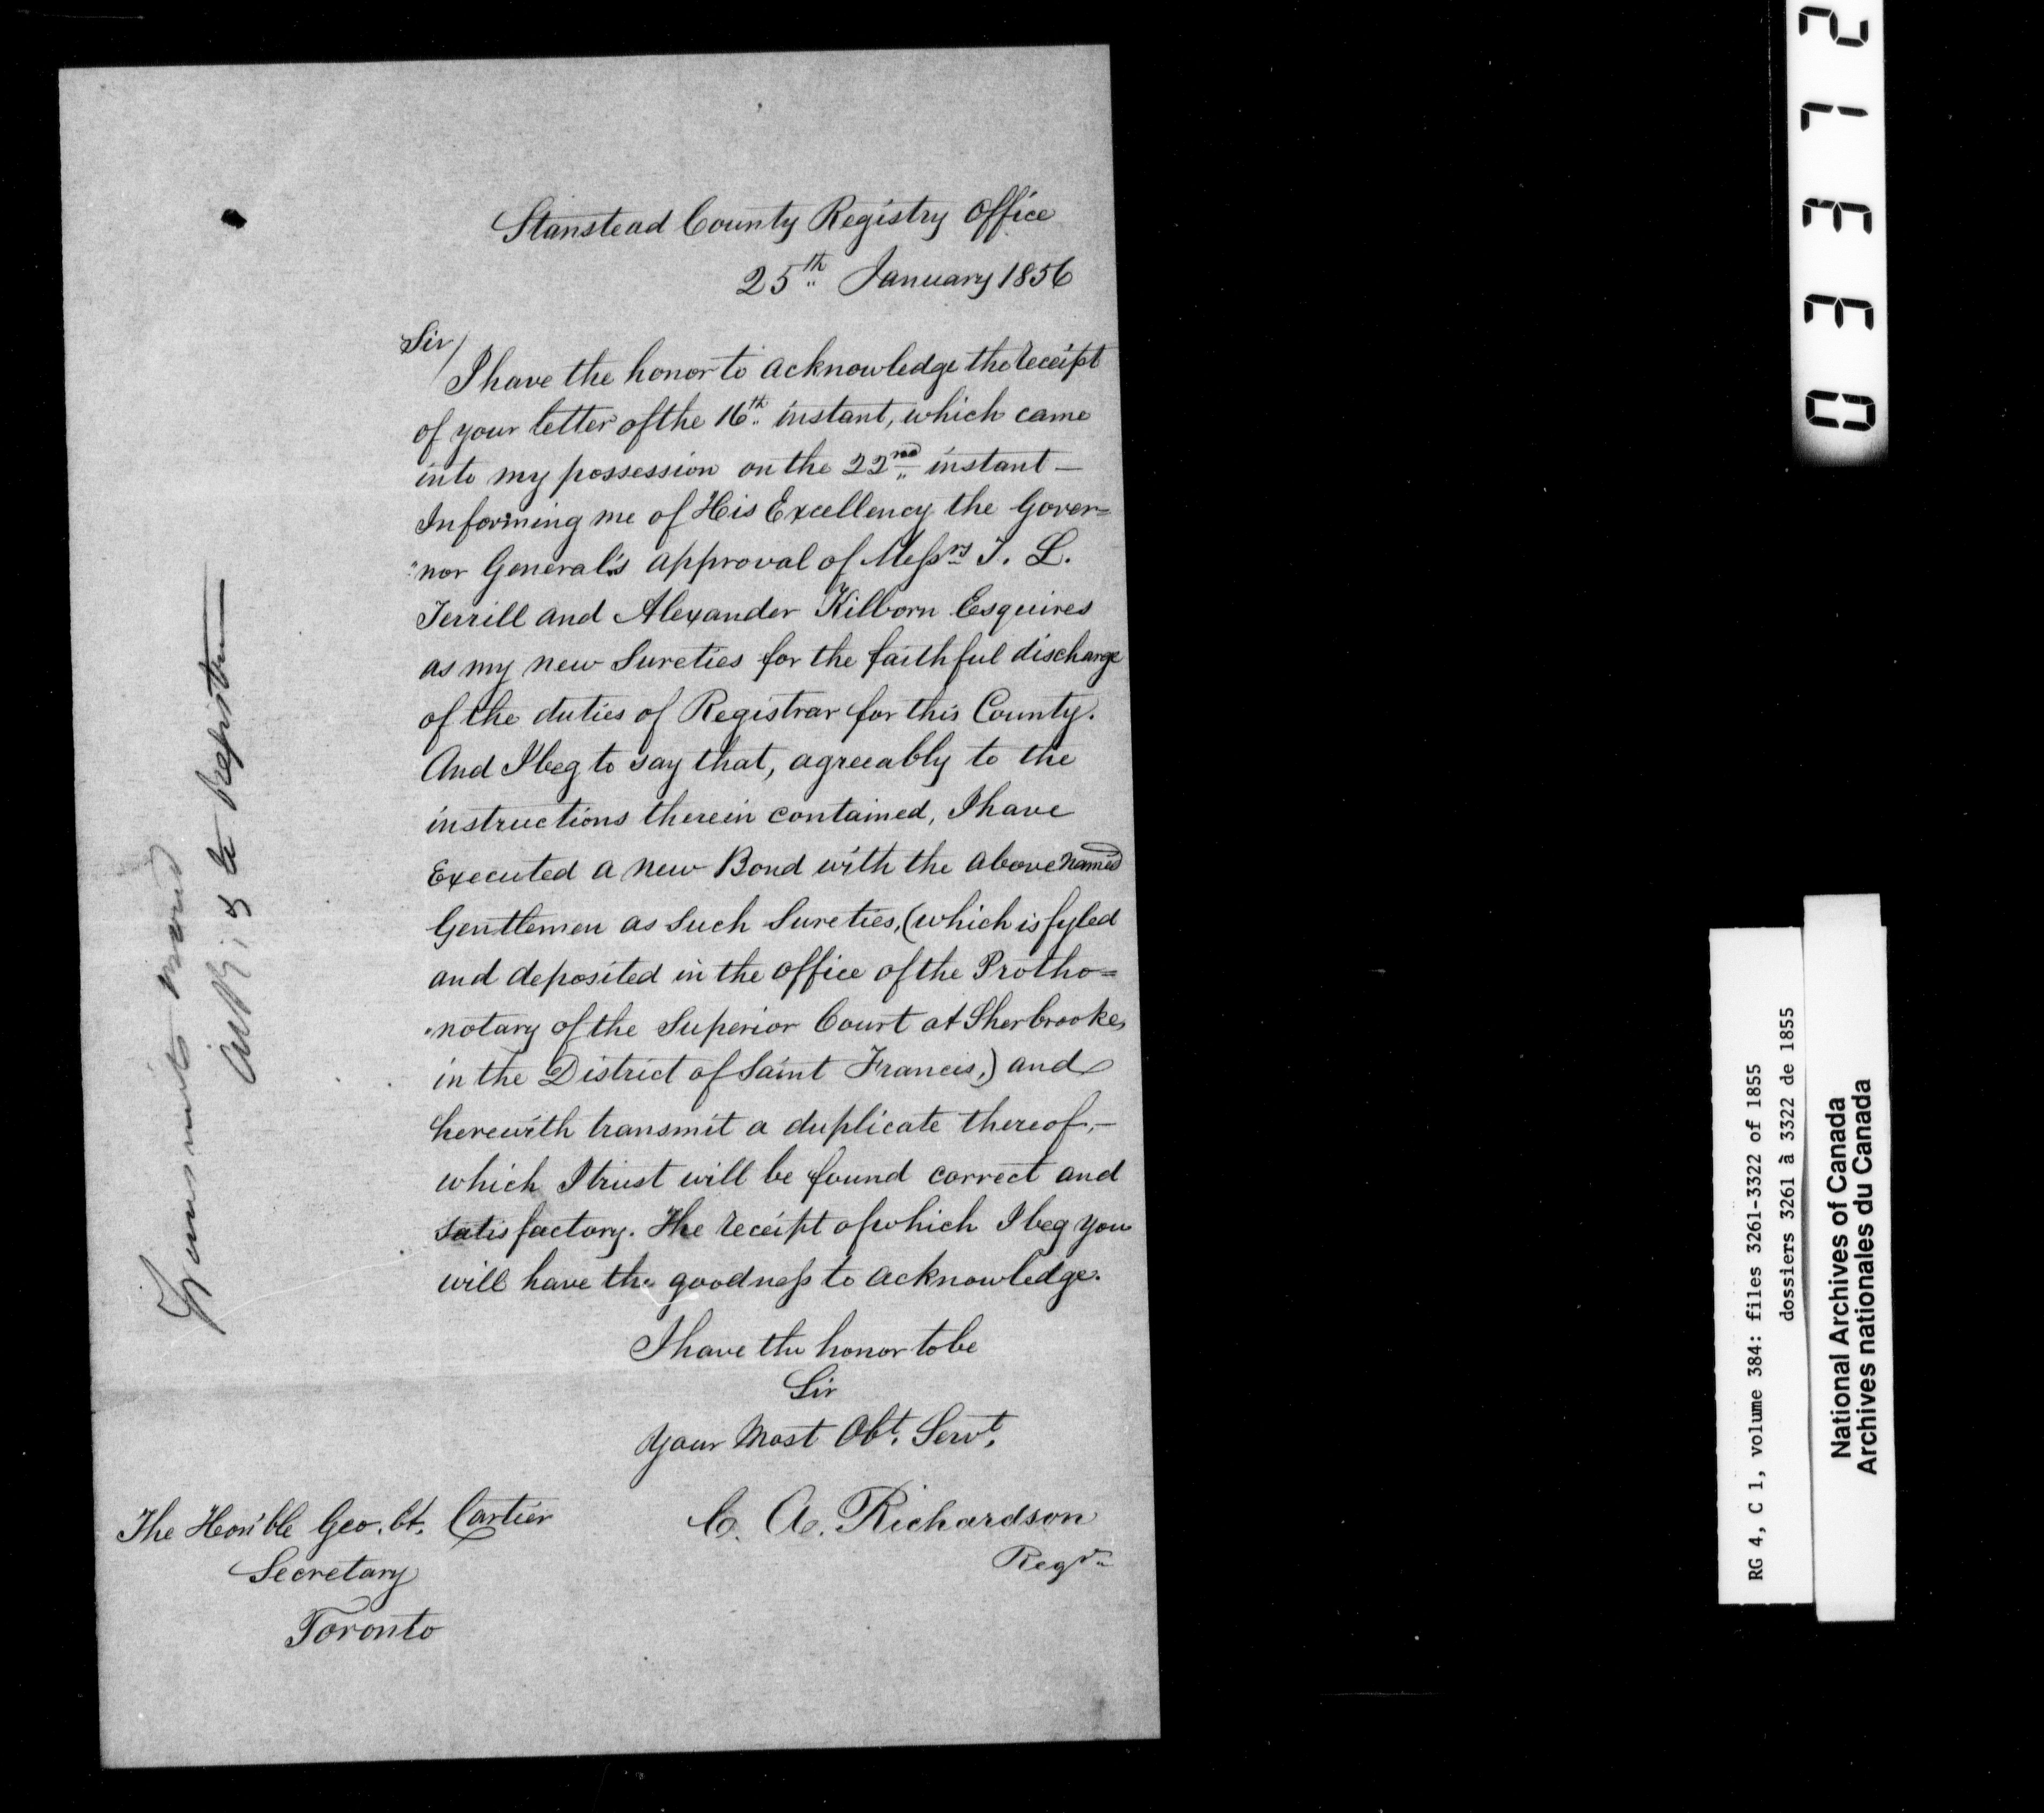 Stanstead County Registry Office
25th January 1856
Sir/
I have the honor to acknowledge the receipt
of your letter of the 16th instant, which came
into my possession on the 22nd instant —
Informing me of His Excellency the Gover=
"nor General's approval of Messrs T. L.
Terrill and Alexander Kilborn Esquires
as my new Sureties for the faithful discharge
of the duties of Registrar for this County.
And I beg to say that, agreeably to the
instructions therein contained, I have
Executed a new Bond with the above named
Gentlemen as such Sureties, (which is fyled
and deposited in the office of the Protho=
"notary of the Superior Court at Sherbrooke,
in the District of Saint Francis,) and
herewith transmit a duplicate thereof, —
which I trust will be found correct and
satisfactory. The receipt of which I beg you
will have the goodness to acknowledge.
I have the honor to be
Sir
Your Most Obt. Servt.
C. A. Richardson
Regr
The Hon'ble Geo. Et. Cartier
Secretary
Toronto
Transmits
03312
RG 4, C 1, volume 384: files 3261-3322 of 1855
dossiers 3261 à 3322 de 1855
National Archives of Canada
Archives nationales du Canada